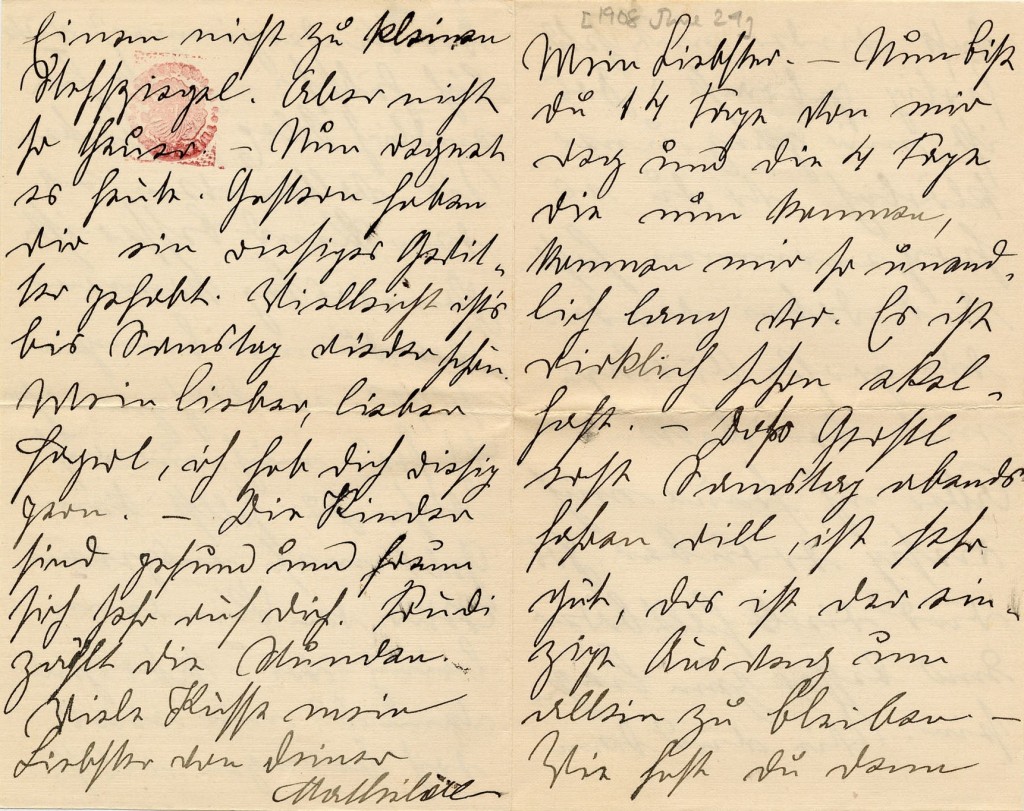 [1908 June 24]
Mein Liebster. — Nun bist
du 14 Tage von mir
weg und die 4 Tage
die nun kommen,
kommen mir so unend-
lich lang vor. Es ist
wirklich schon ekel-
haft. — Dass Gerstl
erst Samstag abends
fahren will, ist sehr
gut, das ist der ein-
zige Ausweg um
allein zu bleiben —
Wie hast du denn
Einen nicht zu kleinen
Stehspiegel. Aber nicht
so theuer. — Nun regnet
es heute. Gestern haben
wir ein riesiges Gewit-
ter gehabt. Vielleicht ist's
bis Samstag wieder schön.
Mein lieber, lieber
, ich hab dich riesig
gern. — Die Kinder
sind gesund und freuen
sich sehr auf dich. Trudi
zählt die Stunden.
Viele Küsse mein
Liebster von deiner
Mathilde